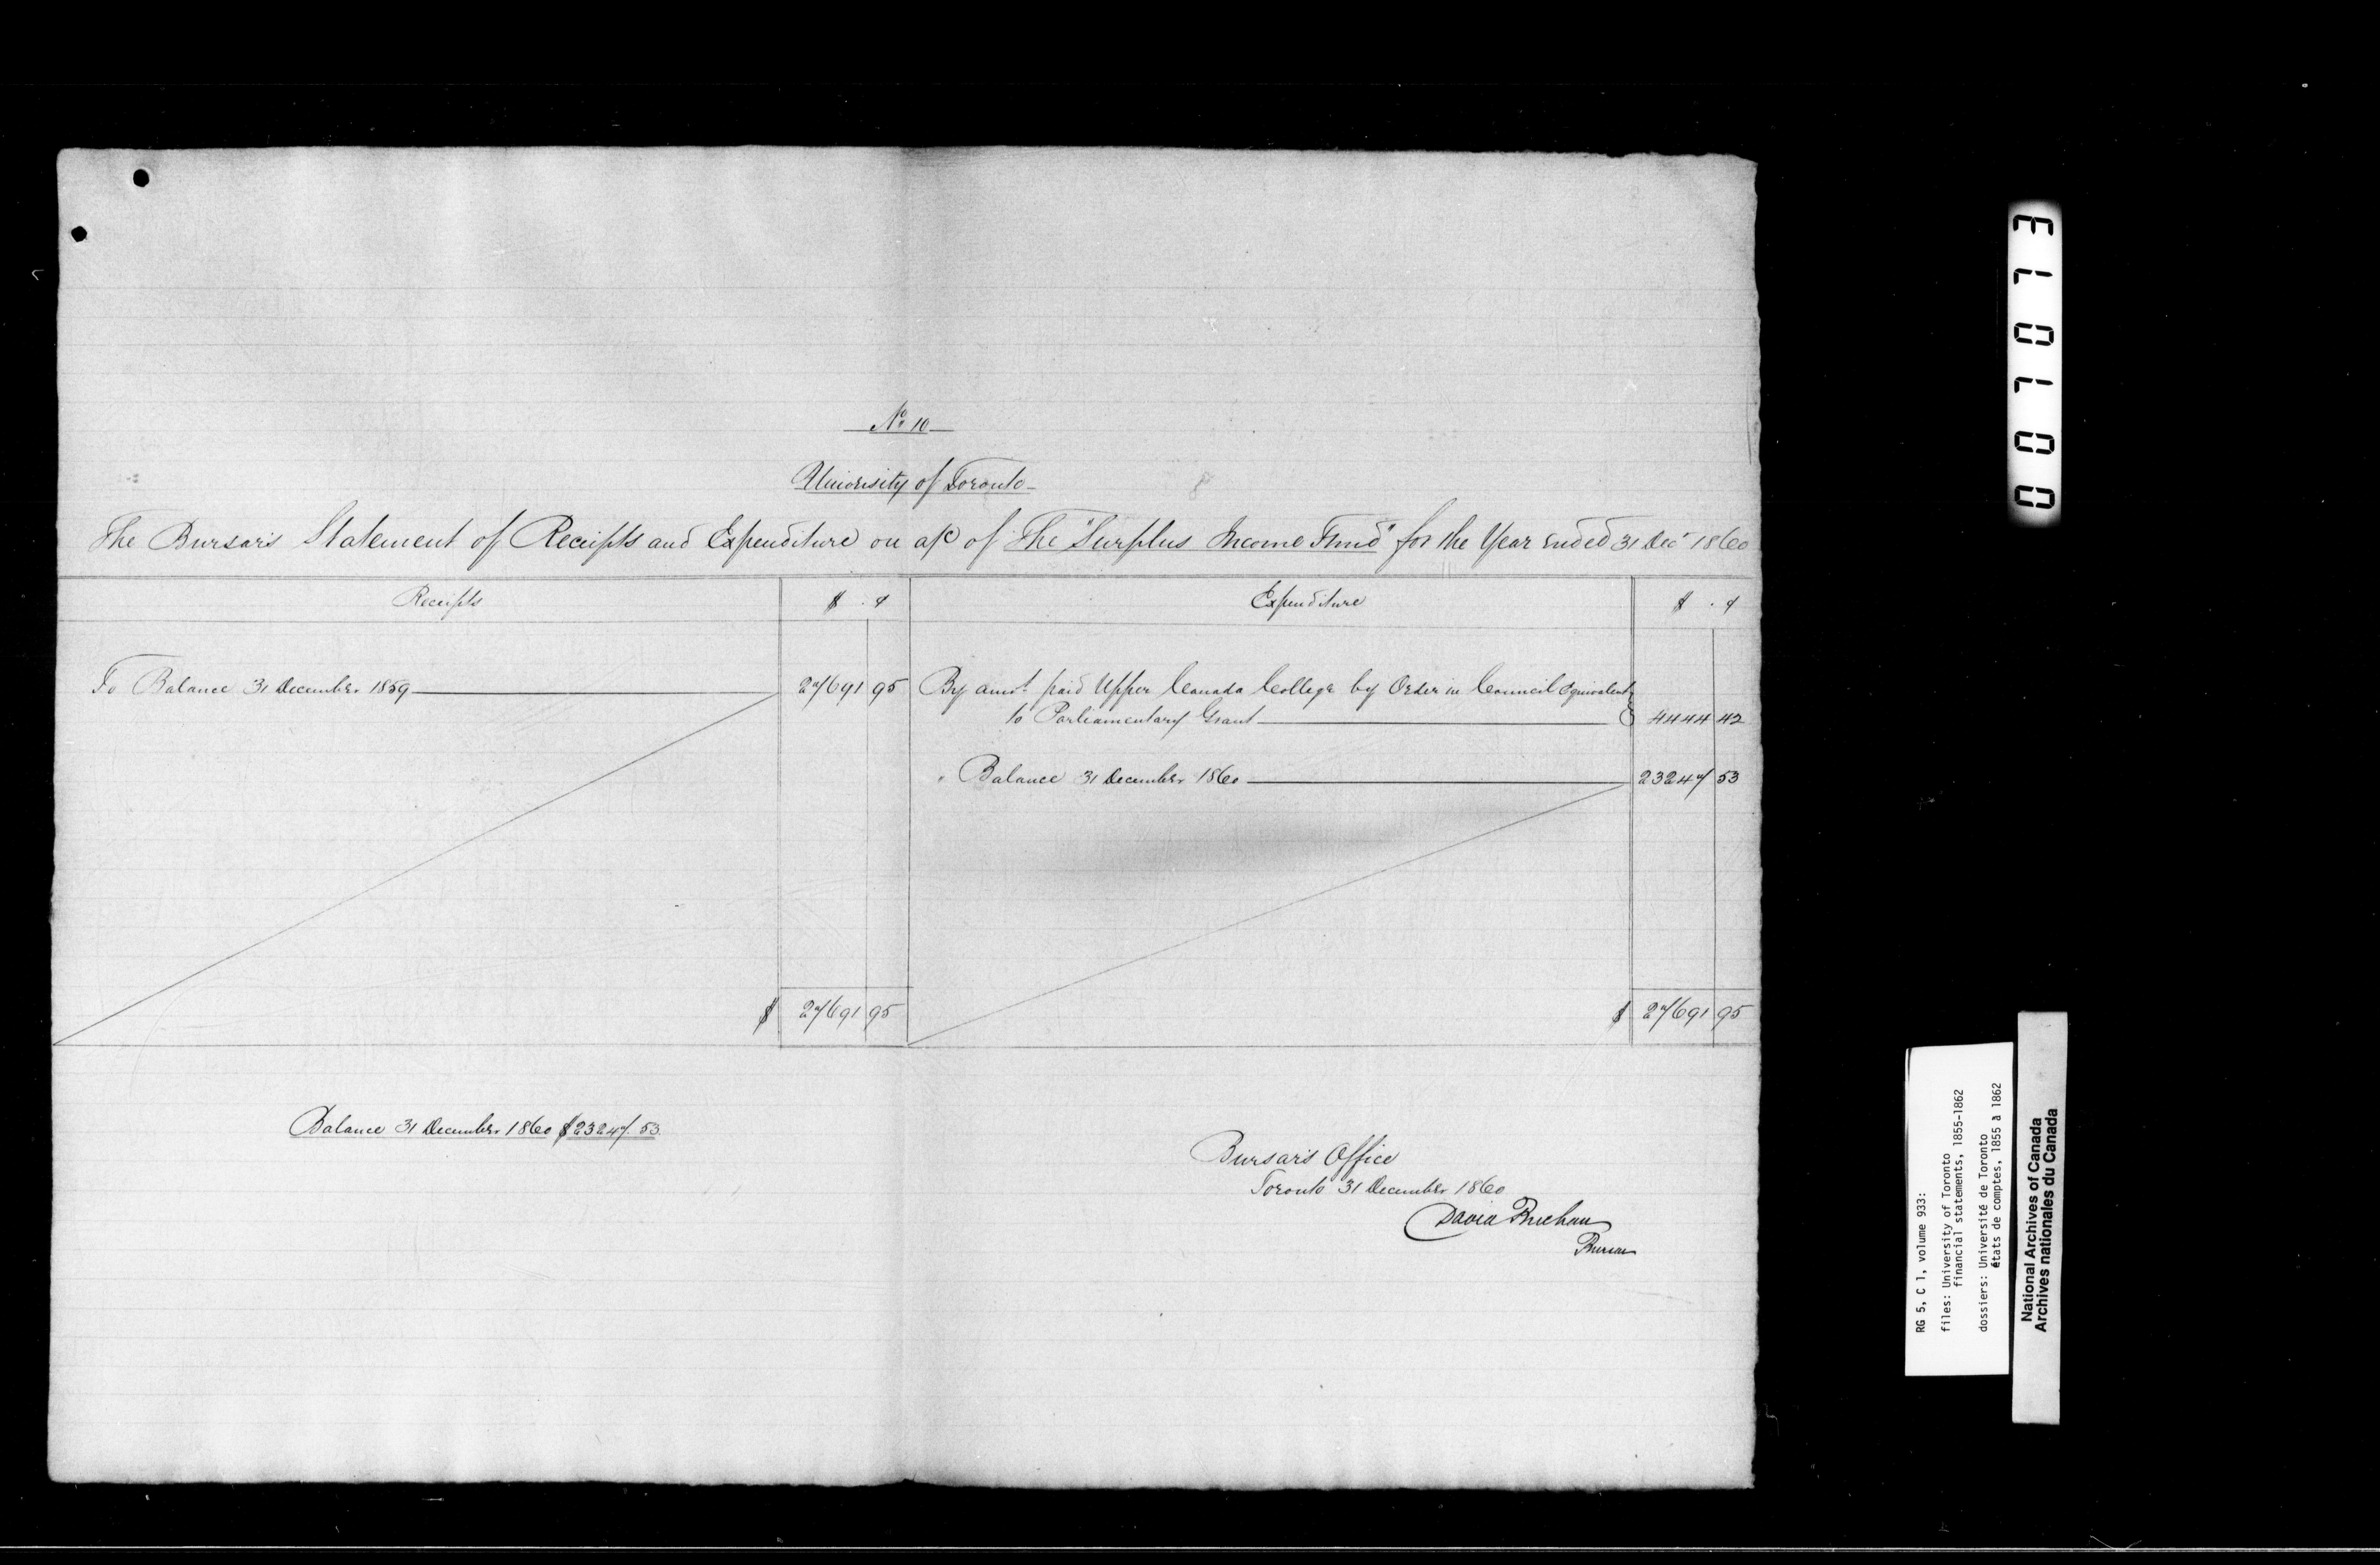 No 10
University of Toronto
The Bursar's Statement of Receipts and Expenditure on a/c of The "Surplus Income Fund" for the Year ended 31 Decr 1860
Receipts $ . ¢ Expenditure $ . ¢
To Balance 31 December 1859 27691 95 By amot. paid Upper Canada College by Order in Council equivalent
to Parliamentary Grant 4444 42
" Balance 31 December 1860 23247 53
$ 27691 95 $ 27691 95
Balance 31 December 1860 $23247.53
Bursar's Office
Toronto 31 December 1860
David Buchan
Bursar
0 0 1 0 1 3
RG 5, C 1, volume 933:
files: University of Toronto
financial statements, 1855-1862
dossiers: Université de Toronto
états de comptes, 1855 à 1862
National Archives of Canada
Archives nationales du Canada